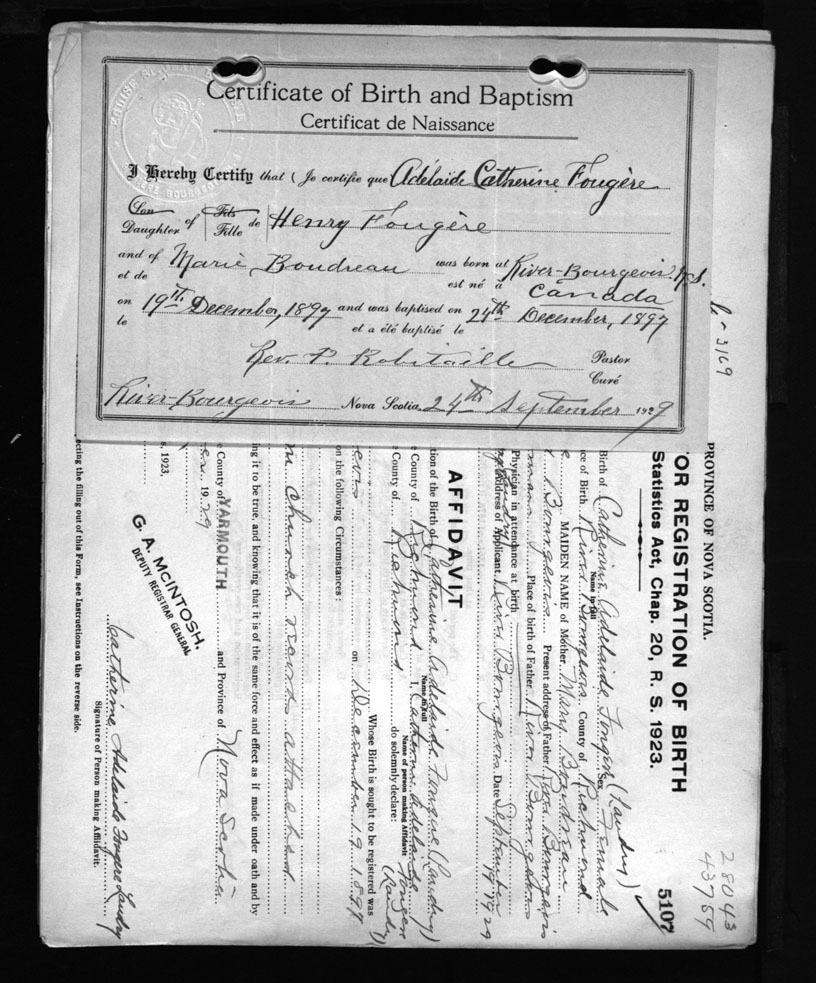 Certificate of Birth and Baptism
Certificat de Naissance
I Hereby Certify that (Je certifie que Adélaide Catherine Fougère
Son Daughter of Fils Fille de Henry Fougère
and of et de Marie Boudreau was born at est né à River-Bourgeois N.S.
Canada
on le 19th December, 1897 and was baptised on et a été baptisé le 24th December, 1897
Rev. P. Robitaille Pastor Curé
River-Bourgeois Nova Scotia, 24th September 1929
PROVINCE OF NOVA SCOTIA.
OR REGISTRATION OF BIRTH
Statistics Act, Chap. 20, R. S. 1923.
5107
28043
43759
Birth of Catherine Adelaide Fougere (Landry) Sex Female
Name in full
ce of Birth River Bourgeois County of Richmond
MAIDEN NAME of Mother Mary Boudreau
Bourgeois Present address of Father River Bourgeois
Place of birth of Father River Bourgeois
Physician in attendance at birth
Address of Applicant River Bourgeois Date September 1929
AFFIDAVIT
tion of the Birth of Catherine Adelaide Fougere (Landry)
Name in full
County of Richmond I, Catherine Adelaide Fougere (Landry)
Name of person making Affidavit
County of Richmond do solemnly declare:
Whose Birth is sought to be registered was
on December 19 1897
on the following Circumstances:
church record attached
ing it to be true, and knowing that it is of the same force and effect as if made under oath and by
e County of YARMOUTH and Province of Nova Scotia
1929
s, 1923,
G. A. McINTOSH.
DEPUTY REGISTRAR GENERAL
Catherine Adelaide Fougere Landry
Signature of Person making Affidavit.
ecting the filling out of this Form, see Instructions on the reverse side.